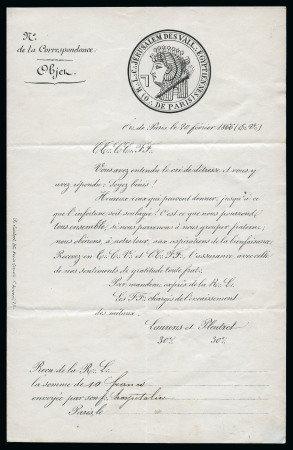 Nº
de la Correspondance.
Objet
R. L. C. JÉRUSALEM DES VALL. ÉGYPTIENNES
O. DE PARIS
Or. de Paris le 20 février 1866 (E. V.)
T. C. F. F.
Vous avez entendu le cri de détresse et vous y
avez répondu: Soyez bénis!
Heureux ceux qui peuvent donner, jusqu'à ce
que l'infortune soit soulagée! C'est ce que nous pourrons,
tous ensemble, si nous parvenons à nous grouper
nous obéirons, à notre tour, aux aspirations de la bienfaisance.
Recevez en T. C. V. et T. C. F. F. l'assurance avec celle
de nos sentiments de gratitude toute frat.
Par mandem. exprès de la R. L.
Les F. F. chargés de l'encaissement
des métaux.
Laurens et Pleutret
30e 30e
Reçu de la R. L.
la somme de 10 francs
envoyée par son f. hospitalier
Paris le